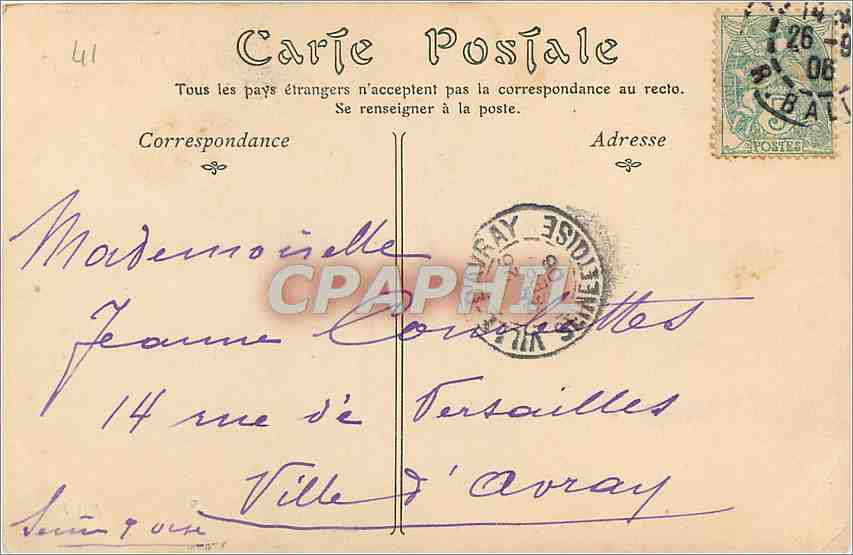 41
Carte Postale
Tous les pays étrangers n'acceptent pas la correspondance au recto.
Se renseigner à la poste.
Correspondance
Adresse
14
26 -9
06
R. BAL
5
POSTES
VILLE-D'AVRAY SEINE ET OISE
CPAPHIL
Mademoiselle
Jeanne
14 rue de Versailles
Ville d'Avray
Seine & Oise